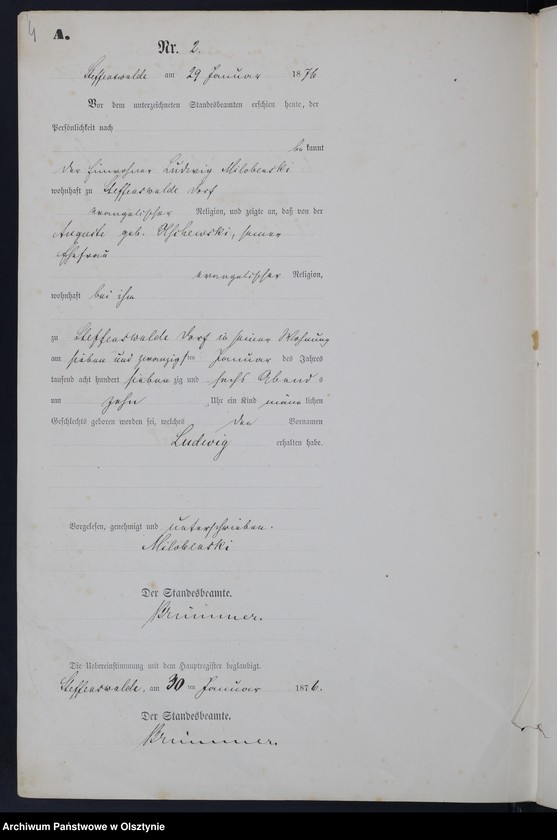 4
A.
Nr. 2.
Steffenswalde am 29 Januar 1876
Vor dem unterzeichneten Standesbeamten erschien heute, der
Persönlichkeit nach
be kannt
der Einwohner Ludwig Miloblenski
wohnhaft zu Steffenswalde Dorf
evangelischer Religion, und zeigte an, daß von der
Auguste geb. Olschewski, seiner
Ehefrau
evangelischer Religion,
wohnhaft bei ihm
zu Steffenswalde Dorf in seiner Wohnung
am sieben und zwanzigsten Januar des Jahres
tausend acht hundert siebenzig und sechs Abends
um zehn Uhr ein Kind männlichen
Geschlechts geboren worden sei, welches den Vornamen
Ludwig erhalten habe.
Vorgelesen, genehmigt und unterschrieben.
Miloblenski
Der Standesbeamte.
Brümmer.
Die Uebereinstimmung mit dem Hauptregister beglaubigt.
Steffenswalde, am 30 ten Januar 1876.
Der Standesbeamte.
Brümmer.
Archiwum Państwowe w Olsztynie